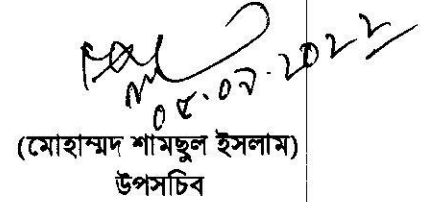 ০৫.০২.২০২২
(মোহাম্মদ শামছুল ইসলাম)
উপসচিব